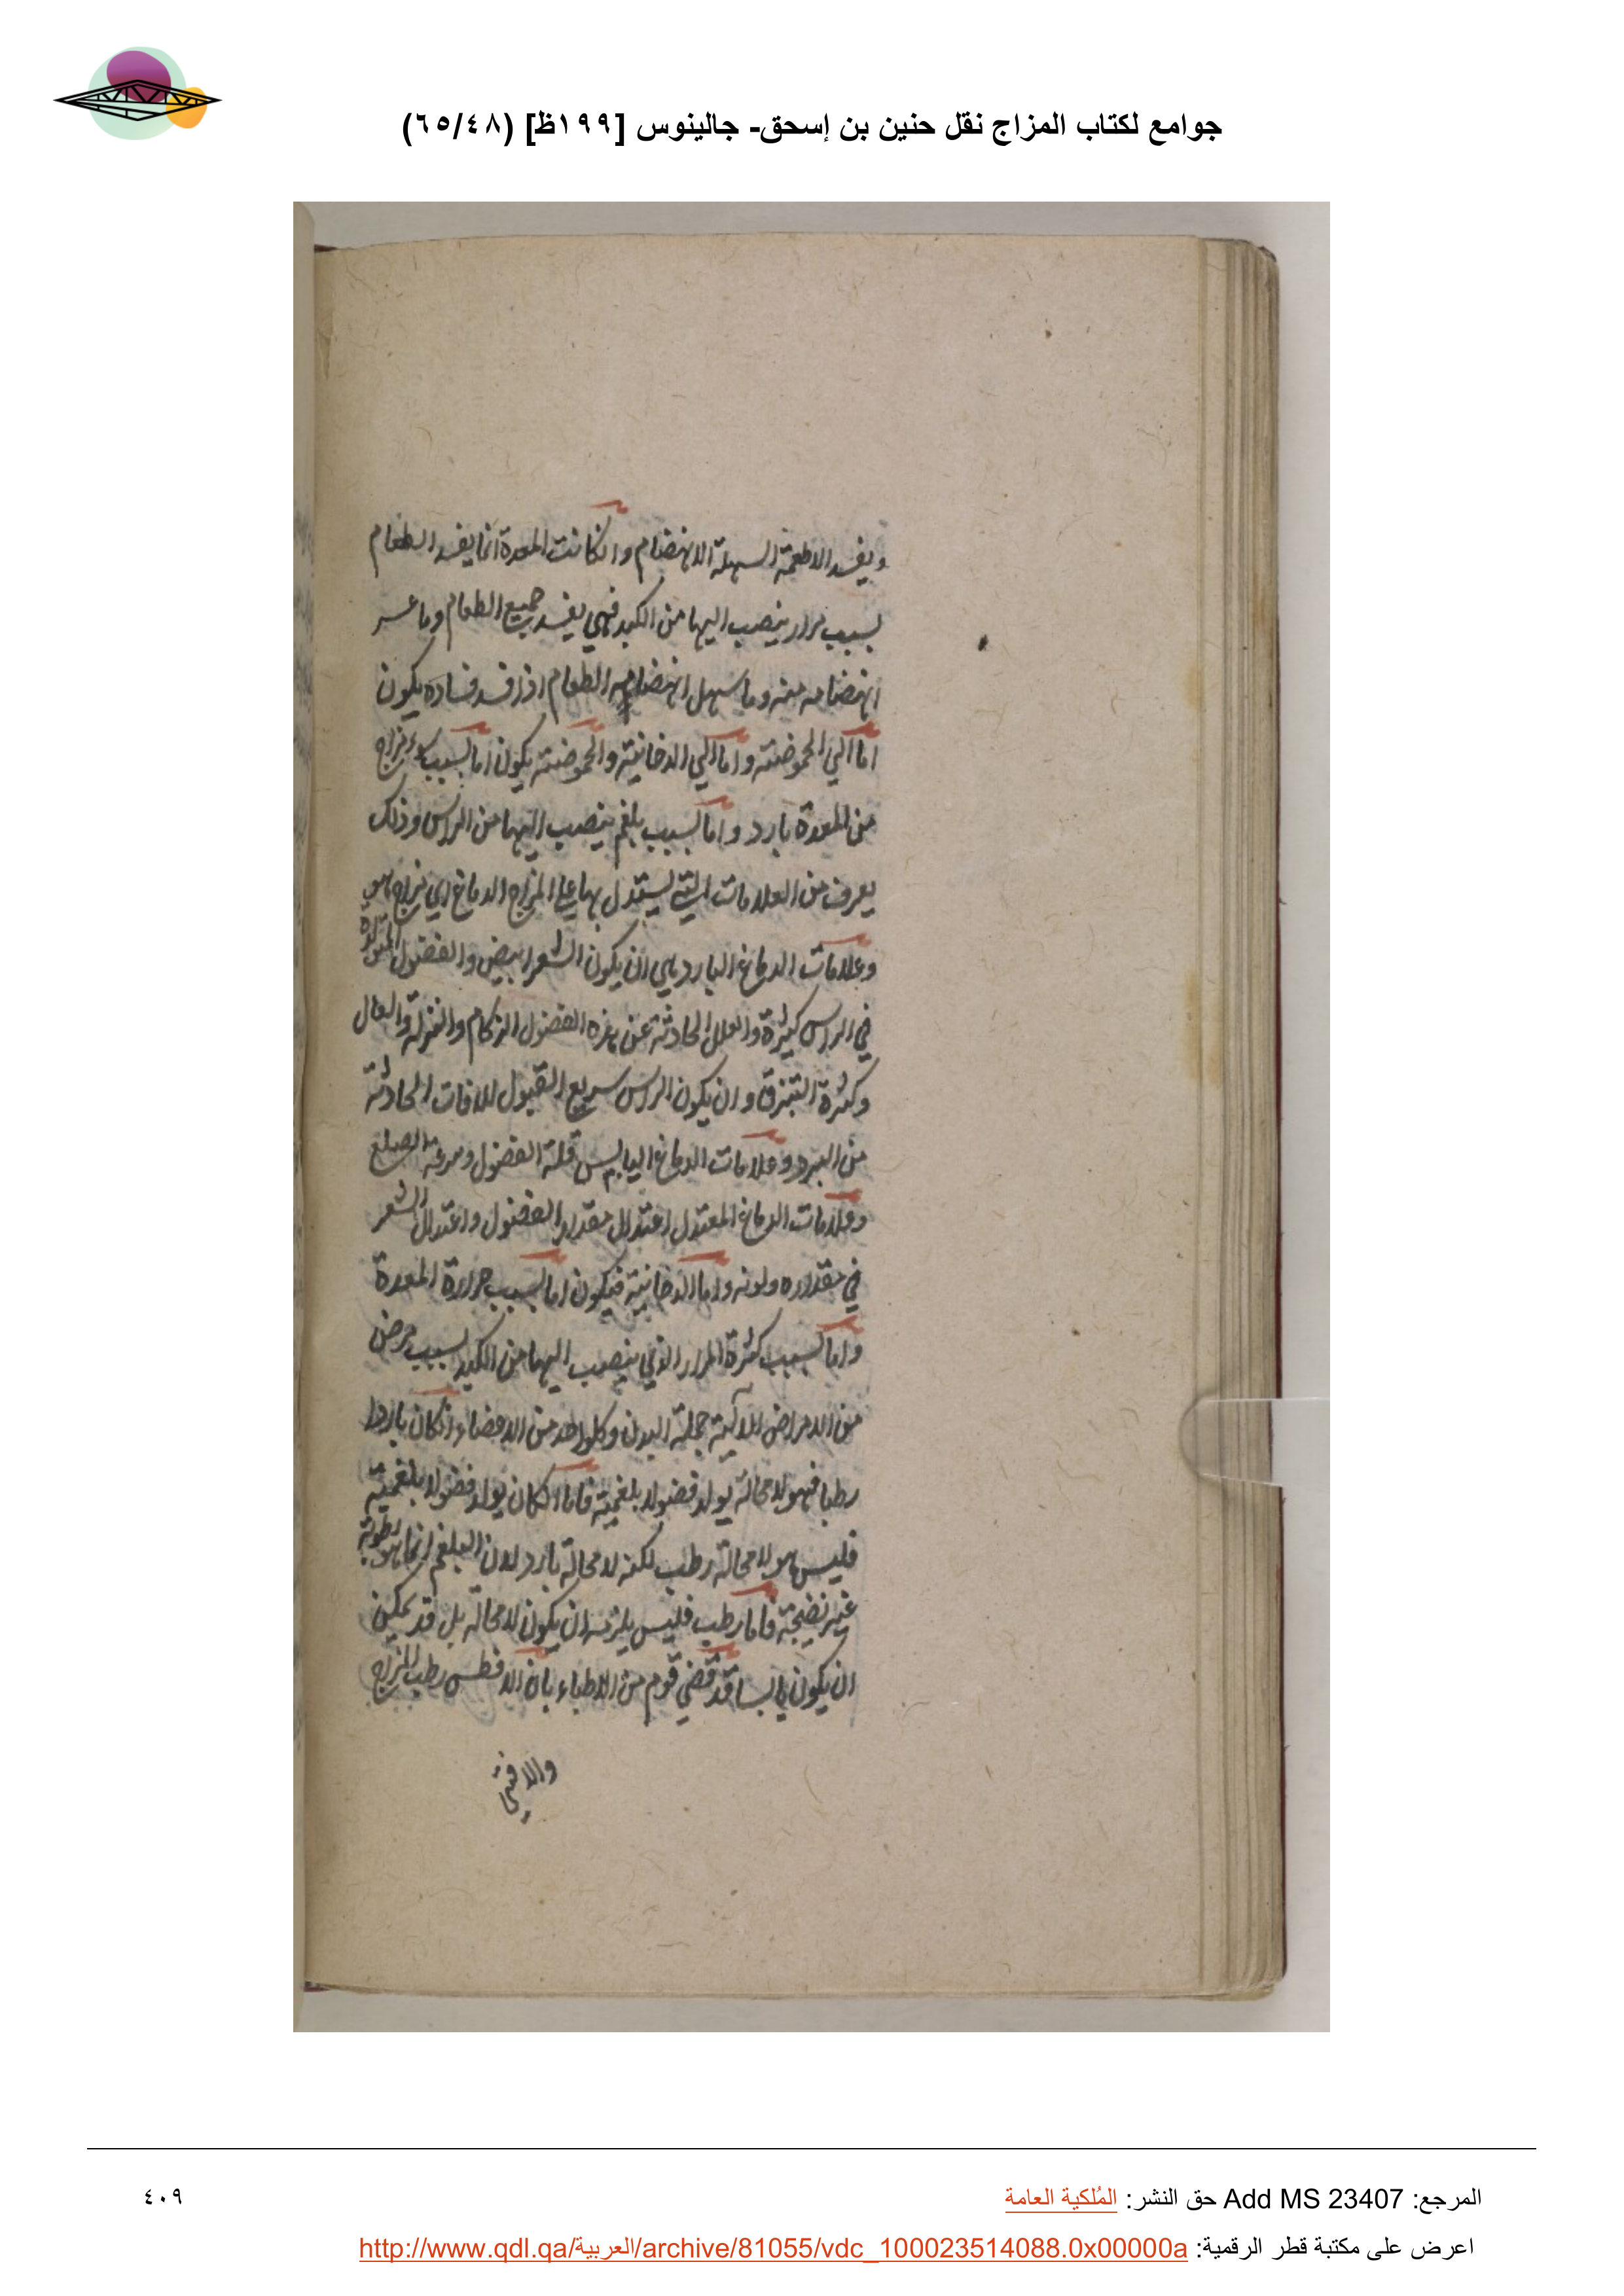 جوامع لكتاب المزاج نقل حنين بن إسحق- جالينوس [١٩٩ظ] (٦٥/٤٨)
ويفسد الاطعمة السهلة الانهضام وان كانت المعدة انما يفسد الطعام
بسبب مرار ينصب اليها من الكبد فهي يفسد جميع الطعام وما عسر
انهضامه منه وما سهل انهضامه الطعام اذا فسد فساده يكون
اما الي الحموضة واما الي الدخانية والحموضة يكون اما بسبب سوء مزاج
من المعدة بارد واما بسبب بلغم ينصب اليها من الراس وذلك
يعرف من العلامات التي يستدل بها علي المزاج الدماغ اي مزاج هو
وعلامات الدماغ البارد هي ان يكون الشعر ابيض والفضول المتولدة
في الراس كثيرة والعلل الحادثة عن هذه الفضول الزكام والنزلة والسعال
وكثرة التبزق وان يكون الراس سريع القبول للافات الحادثة
من البرد وعلامات الدماغ اليابس قلة الفضول وسرعة الصلع
وعلامات الدماغ المعتدل اعتدال مقدار الفضول واعتدال الشعر
في مقداره ولونه واما الدخانية فيكون اما بسبب حرارة المعدة
واما بسبب كثرة المرار الذي ينصب اليها من الكبد بسبب مرض
من الامراض الآلية جملة البدن وكل واحد من الاعضاء ان كان باردا
رطبا فهو لا محالة يولد فضولا بلغمية فاما ان كان يولد فضولا بلغمية
فليس هو لا محالة رطب لكنه لا محالة بارد لان البلغم انما هو رطوبة
غير نضيجة فاما رطب فليس يلزمه ان يكون لا محالة بل قد يمكن
ان يكون يابسا قد قضي قوم من الاطباء بان الافطس رطب المزاج
والاقني
المرجع: Add MS 23407 حق النشر: المُلكية العامة
٤٠٩
اعرض على مكتبة قطر الرقمية: http://www.qdl.qa/العربية/archive/81055/vdc_100023514088.0x00000a